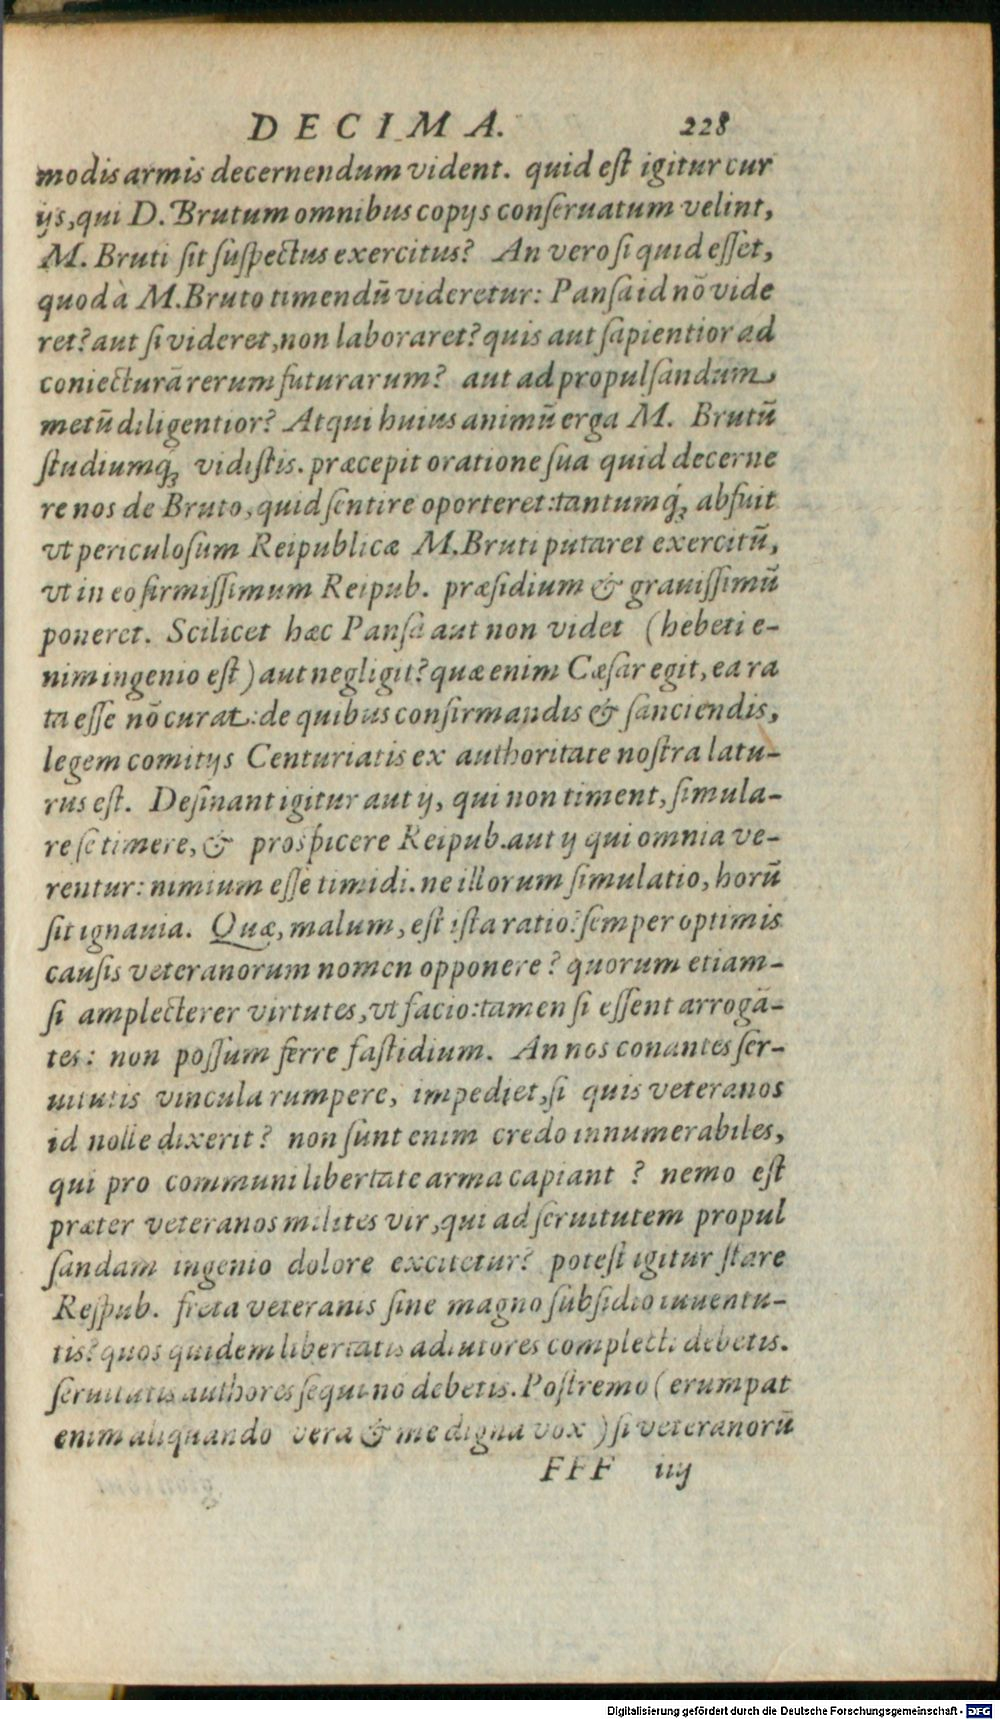 DECIMA. 228
modis armis decernendum vident. quid est igitur cur
ijs, qui D. Brutum omnibus copijs conseruatum velint,
M. Bruti sit suspectus exercitus? An vero si quid esset,
quod à M. Bruto timendū videretur: Pansa id nō vide
ret? aut si videret, non laboraret? quis aut sapientior ad
coniecturā rerum futurarum? aut ad propulsandum
metū diligentior? Atqui huius animū erga M. Brutū
studiumq́ʒ vidistis. præcepit oratione sua quid decerne
re nos de Bruto, quid sentire oporteret: tantumq́ʒ abfuit
vt periculosum Reipublicæ M. Bruti putaret exercitū,
vt in eo firmissimum Reipub. præsidium & grauissimū
poneret. Scilicet hæc Pansa aut non videt (hebeti e-
nim ingenio est) aut negligit? quæ enim Cæsar egit, ea ra
ta esse nō curat: de quibus confirmandis & sanciendis,
legem comitijs Centuriatis ex authoritate nostra latu-
rus est. Desinant igitur aut ij, qui non timent, simula-
re se timere, & prospicere Reipub. aut ij qui omnia ve-
rentur: nimium esse timidi. ne illorum simulatio, horū
sit ignauia. Quæ, malum, est ista ratio? semper optimis
causis veteranorum nomen opponere? quorum etiam-
si amplecterer virtutes, vt facio: tamen si essent arrogā-
tes: non possum ferre fastidium. An nos conantes ser-
uitutis vincula rumpere, impediet, si quis veteranos
id nolle dixerit? non sunt enim credo innumerabiles,
qui pro communi libertate arma capiant? nemo est
præter veteranos milites vir, qui ad seruitutem propul
sandam ingenio dolore excitetur? potest igitur stare
Respub. freta veteranis sine magno subsidio iuuentu-
tis? quos quidem libertatis adiutores complecti debetis.
seruitutis authores sequi nō debetis. Postremo (erumpat
enim aliquando vera & me digna vox) si veteranorū
FFF iiij
Digitalisierung gefördert durch die Deutsche Forschungsgemeinschaft - DFG